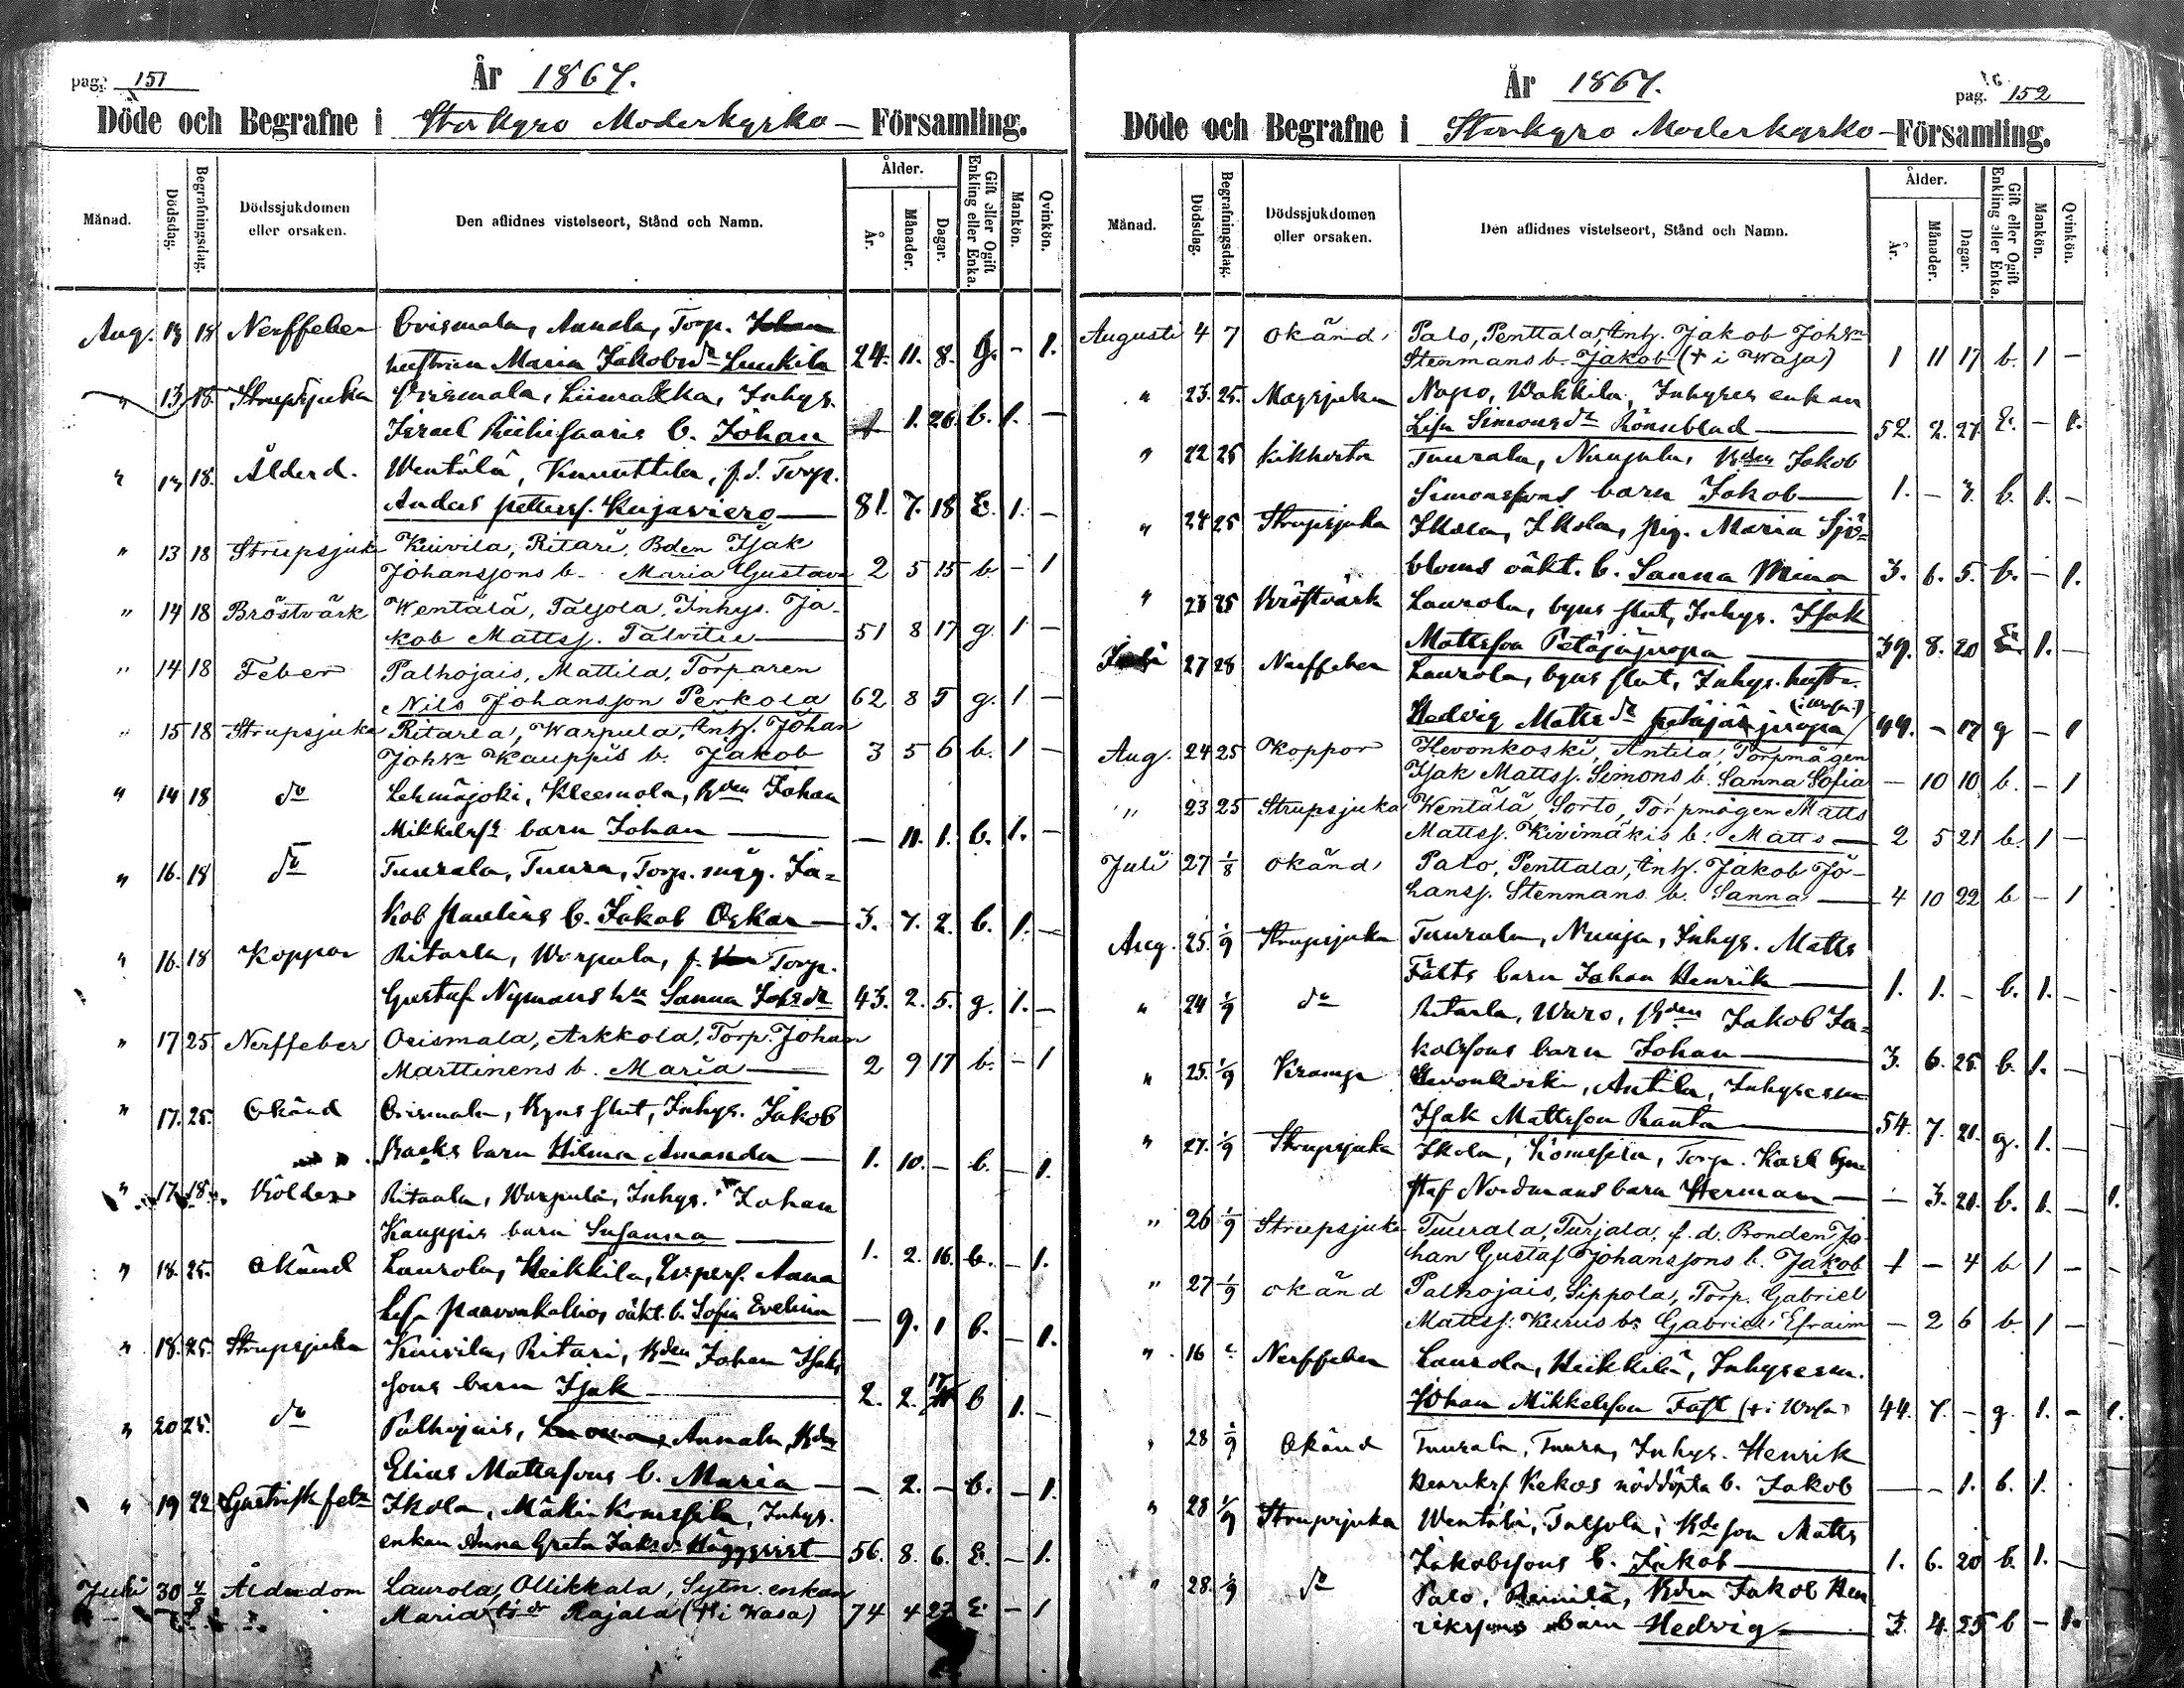 pag: 151
År 1867.
Döde och Begrafne i Storkyro Moderkyrko- Församling.
Månad. Dödsdag. Begrafningsdag. Dödssjukdomen eller orsaken. Den aflidnes vistelseort, Stånd och Namn. Ålder. År. Månader. Dagar. Gift eller Ogift Enkling eller Enka. Mankön. Qvinkön.
Aug. 13 18 Nerffeber Orismala, Annala, Torp. Johan
hustrun Maria Jakobsdr Luukila 24. 11. 8. g. - 1.
" 13 18. Strupsjuka Orismala, Liuralkka, Inhys.
Israel Riihisaaris b. Johan 1 1. 26. b. 1. -
" 13 18. Ålderd. Wentälä, Knuuttila, f.d. Torp.
Anders petterss. Kujaviers 81. 7. 18 E. 1. -
" 13 18 Strupsjuka Kuivila, Ritari, Bden Isak
Johanssons b. Maria Gustava 2 5 15 b - 1
" 14 18 Bröstvärk Wentälä, Taljola, Inhys. Ja-
kob Mattsj. Talvitie 51 8 17 g. 1 -
" 14 18 Feber Palhojais, Mattila, Torparen
Nils Johansson Perkola 62 8 5 g. 1 -
" 15 18 Strupsjuka Ritarla, Warpula, Inh. Johan
Johsn Kauppis b. Jakob 3 5 6 b. 1 -
" 14 18 do Lehmäjoki, Kleemola, Bden Johan
Mikkelss barn Johan - 11. 1. b. 1. -
" 16. 18 do Tuurala, Tuura, Torp. måg. Ja=
kob Paulins b. Jakob Oskar 3. 7. 2. b. 1. -
" 16. 18 Koppor Ritarla, Warpula, f. Torp.
Gustaf Nymans hu Sanna Johsdr 43. 2. 5. g. 1. -
" 17 25 Nerffeber Orismala, Arkkola, Torp. Johan
Marttinens b. Maria 2 9 17 b. - 1
" 17. 25. Okänd Orismala, Byns slut, Inhys. Jakob
Backs barn Hilma Amanda 1. 10. - b. - 1.
" 17. 18. Kölder Ritarla, Warpula, Inhys. Johan
Kauppis barn Susanna 1. 2. 16. b. - 1.
" 18. 25. Okänd Laurola, Heikkila, Anna
Lisa Paavonkallios oäkt. b. Sofia Evelina - 9. 1 b. - 1.
" 18. 25. Strupsjuka Kuivila, Ritari, Bden Johan Isaks
sons barn Isak 2. 2. 17 b 1. -
" 20 25. do Palhojais, Annala, Bden
Elias Mattssons b. Maria - 2. - b. - 1.
" 19 22 Gastrisk feb. Ikola, Mäki-Komsila, Inhys.
enkan Anna Greta Jaksdr Häggqvist 56. 8. 6. E. - 1.
Juli 30 4/8 Ålderdom Laurola, Ollikkala, Sytn. enkan
Maria Rajala († i Wasa) 74 4 27 E - 1
År 1867.
pag. 152
Döde och Begrafne i Storkyro Moderkyrko- Församling.
Månad. Dödsdag. Begrafningsdag. Dödssjukdomen eller orsaken. Den aflidnes vistelseort, Stånd och Namn. Ålder. År. Månader. Dagar. Gift eller Ogift Enkling eller Enka. Mankön. Qvinkön.
Augusti 4 7 okänd Palo, Penttala, Inh. Jakob Johsn
Stenmans b. Jakob († i Wasa) 1 11 17 b. 1 -
" 23. 25. Magsjuka Napo, Wakkila, Inhyses enkan
Lisa Simonsdr Rönnblad 52. 2. 27. E. - 1.
" 22 25 kikhosta Tuurala, Nuujala, Bden Jakob
Simonssons barn Jakob 1. - 7. b. 1. -
" 24 25 Strupsjuka Ikola, Ikola, pig. Maria Sjö=
bloms oäkt. b. Sanna Mina 3. 6. 5. b. - 1.
" 23 25 Bröstvärk Laurola, byns slut, Inhys. Isak
Mattsson Petäjäjuopa 39. 8. 20 E. 1. -
Juli 27 28 Nerffeber Laurola, byns slut, Inhys. hustr.
Hedvig Mattsdr Petäjäjuopa (i Wasa) 44. - 17 g - 1
Aug. 24 25 Koppor Hevonkoski, Antila, Torpmågen
Isak Mattsj. Simons b. Sanna Sofia - 10 10 b. - 1
" 23 25 Strupsjuka Wentälä, Sorto, Torpmågen Matts
Mattsj. Kivimäkis b. Matts 2 5 21 b. 1 -
Juli 27 1/8 okänd Palo, Penttala, Inh. Jakob Jo-
hansj. Stenmans b. Sanna 4 10 22 b - 1
Aug. 25. 1/9 Strupsjuka Tuurala, Nuuja, Inhys. Matts
Fälts barn Johan Henrik 1. 1. - b. 1. -
" 24 1/9 do Ritarla, Waro, Bden Jakob Ja=
kobssons barn Johan 3. 6. 25. b. 1. -
" 25. 1/9 Kramp Hevonkoski, Antila, Inhysesm
Isak Mattsson Ranta 54. 7. 21. g. 1. -
" 27. 1/9 Strupsjuka Ikola, Komsila, Torp. Karl Gu
staf Nordmans barn Herman - 3. 20. b. 1. -
" 26 1/9 Strupsjuka Tuurala, Turjala, f.d. Bonden Jo
han Gustaf Johanssons b. Jakob 1 - 4 b 1 -
" 27 1/9 okänd Palhojais, Sippola, Torp. Gabriel
Mattsj. Kuus b. Gabriel Efraim - 2 6 b. 1 -
" 16 Nerffeber Laurola, Heikkilä, Inhysesm.
Johan Mikkelsson Fast († i Wasa) 44. 7. - g. 1. -
" 28 1/9 Okänd Tuurala, Tuura, Inhys. Henrik
Henrikss. Kekos nöddöpta b. Jakob - - 1. b. 1.
" 28 1/9 Strupsjuka Wentälä, Taljola, Bdeson Matts
Jakobssons b. Jakob 1. 6. 20 b. 1. -
" 28. 1/9 do Palo, Reinilä, Bden Jakob Hen
rikssons barn Hedvig 3. 4. 25 b - 1.